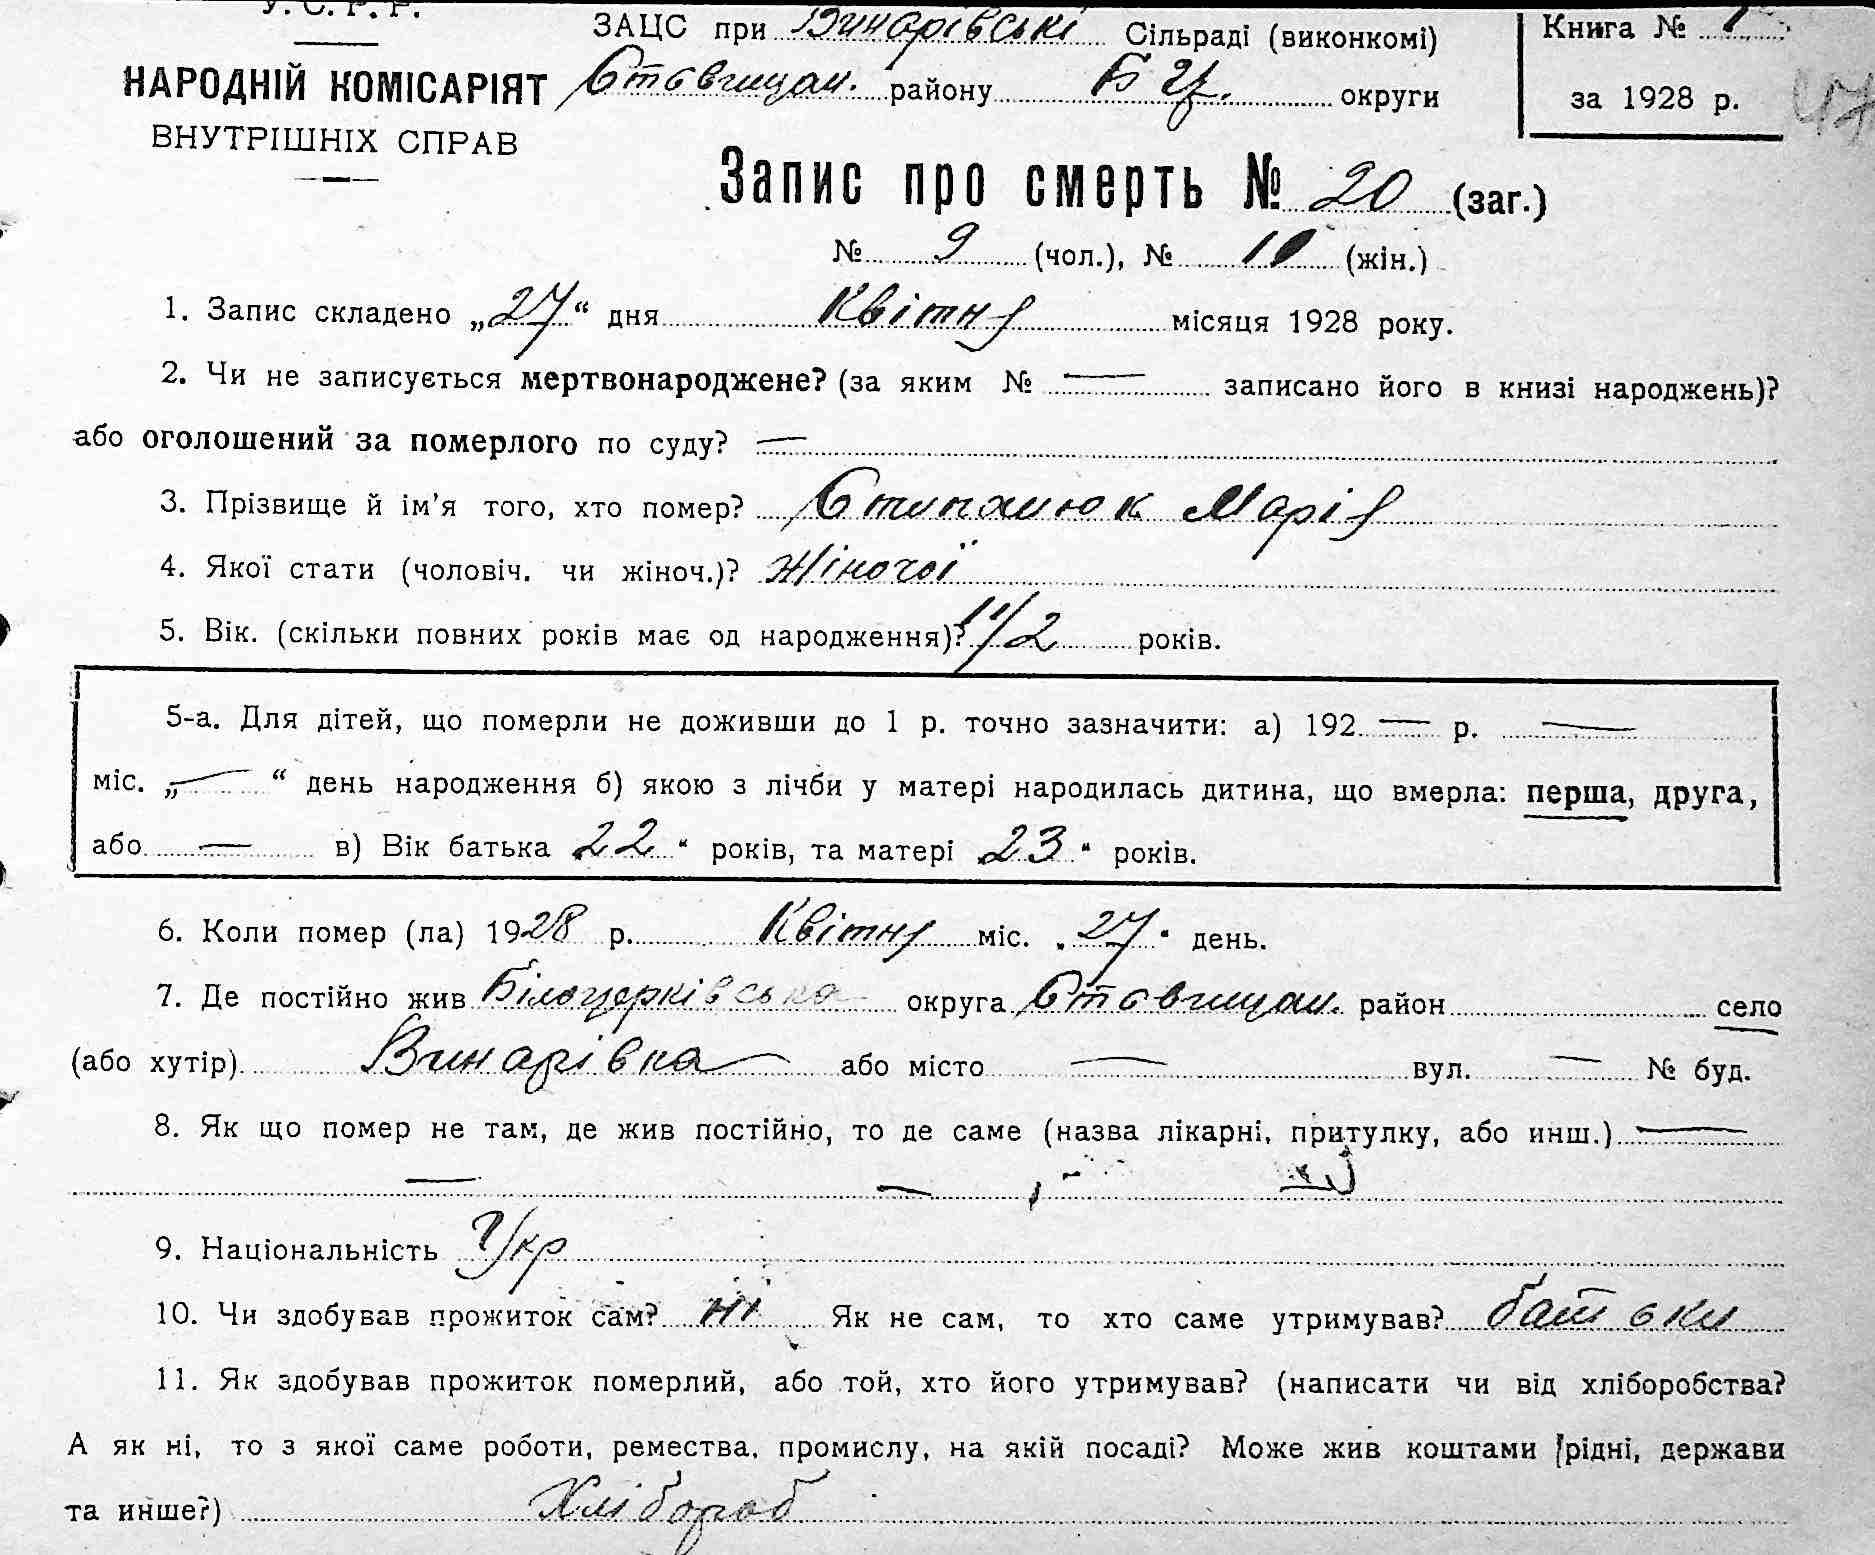 У. С. Р. Р.
ЗАЦС при Винарівські Сільраді (виконкомі)
Книга № 1
НАРОДНІЙ КОМІСАРІЯТ
Ставищан. району Б Ц. округи
за 1928 р.
47
ВНУТРІШНІХ СПРАВ
Запис про смерть № 20 (заг.)
№ 9 (чол.), № 10 (жін.)
1. Запис складено „27“ дня Квітня місяця 1928 року.
2. Чи не записується мертвонароджене? (за яким № — записано його в книзі народжень)?
або оголошений за померлого по суду? —
3. Прізвище й ім’я того, хто помер? Степанюк Марія
4. Якої стати (чоловіч. чи жіноч.)? Жіночої
5. Вік. (скільки повних років має од народження)? 1 1/2 років.
5-а. Для дітей, що померли не доживши до 1 р. точно зазначити: а) 192 — р. —
міс. „—“ день народження б) якою з лічби у матері народилась дитина, що вмерла: перша, друга,
або — в) Вік батька 22 “ років, та матері 23 “ років.
6. Коли помер (ла) 1928 р. Квітня міс. „27“ день.
7. Де постійно жив Білоцерківська округа Ставищан. район село
(або хутір) Винарівка або місто — вул. — № буд.
8. Як що помер не там, де жив постійно, то де саме (назва лікарні, притулку, або инш.) —
— —
9. Національність Укр
10. Чи здобував прожиток сам? ні Як не сам, то хто саме утримував? батьки
11. Як здобував прожиток померлий, або той, хто його утримував? (написати чи від хліборобства?
А як ні, то з якої саме роботи, ремества, промислу, на якій посаді? Може жив коштами [рідні, держави
та инше?) Хлібороб